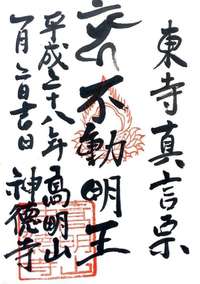 東寺真言宗
不動明王
高明山
神徳寺
平成二十八年
一月二日吉日